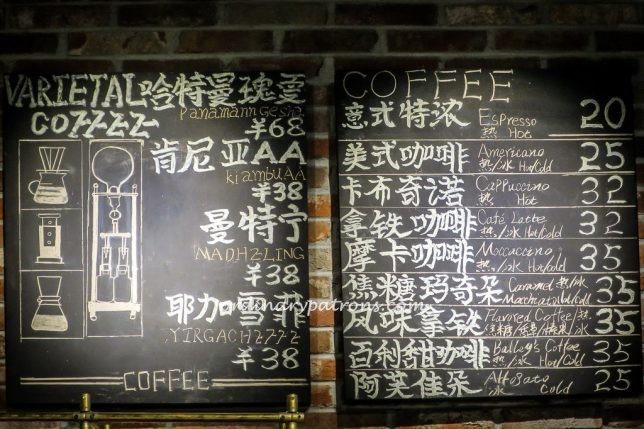 VARIETAL 哈特曼瑰夏
COFFEE
Panamann Gesha
¥68
肯尼亚AA
kiambu AA
¥38
曼特宁
MADHZLING
¥38
耶加雪菲
YIRGACHZZZZ
¥38
COFFEE
COFFEE
意式特浓 Espresso 20
热 Hot
美式咖啡 Americano 25
热/冰 Hot/Cold
卡布奇诺 Cappuccino 32
热 Hot
拿铁咖啡 Café Latte 32
热/冰 Hot/Cold
摩卡咖啡 Moccaccino 35
热/冰 Hot/Cold
焦糖玛奇朵 Caramel 热/冰 35
Macchiato Hot/Cold
风味拿铁 Flavored Coffee/热 35
百利甜咖啡 Bailey's Coffee 35
热/冰 Hot/Cold
阿芙佳朵 Affogato 25
冰 Cold